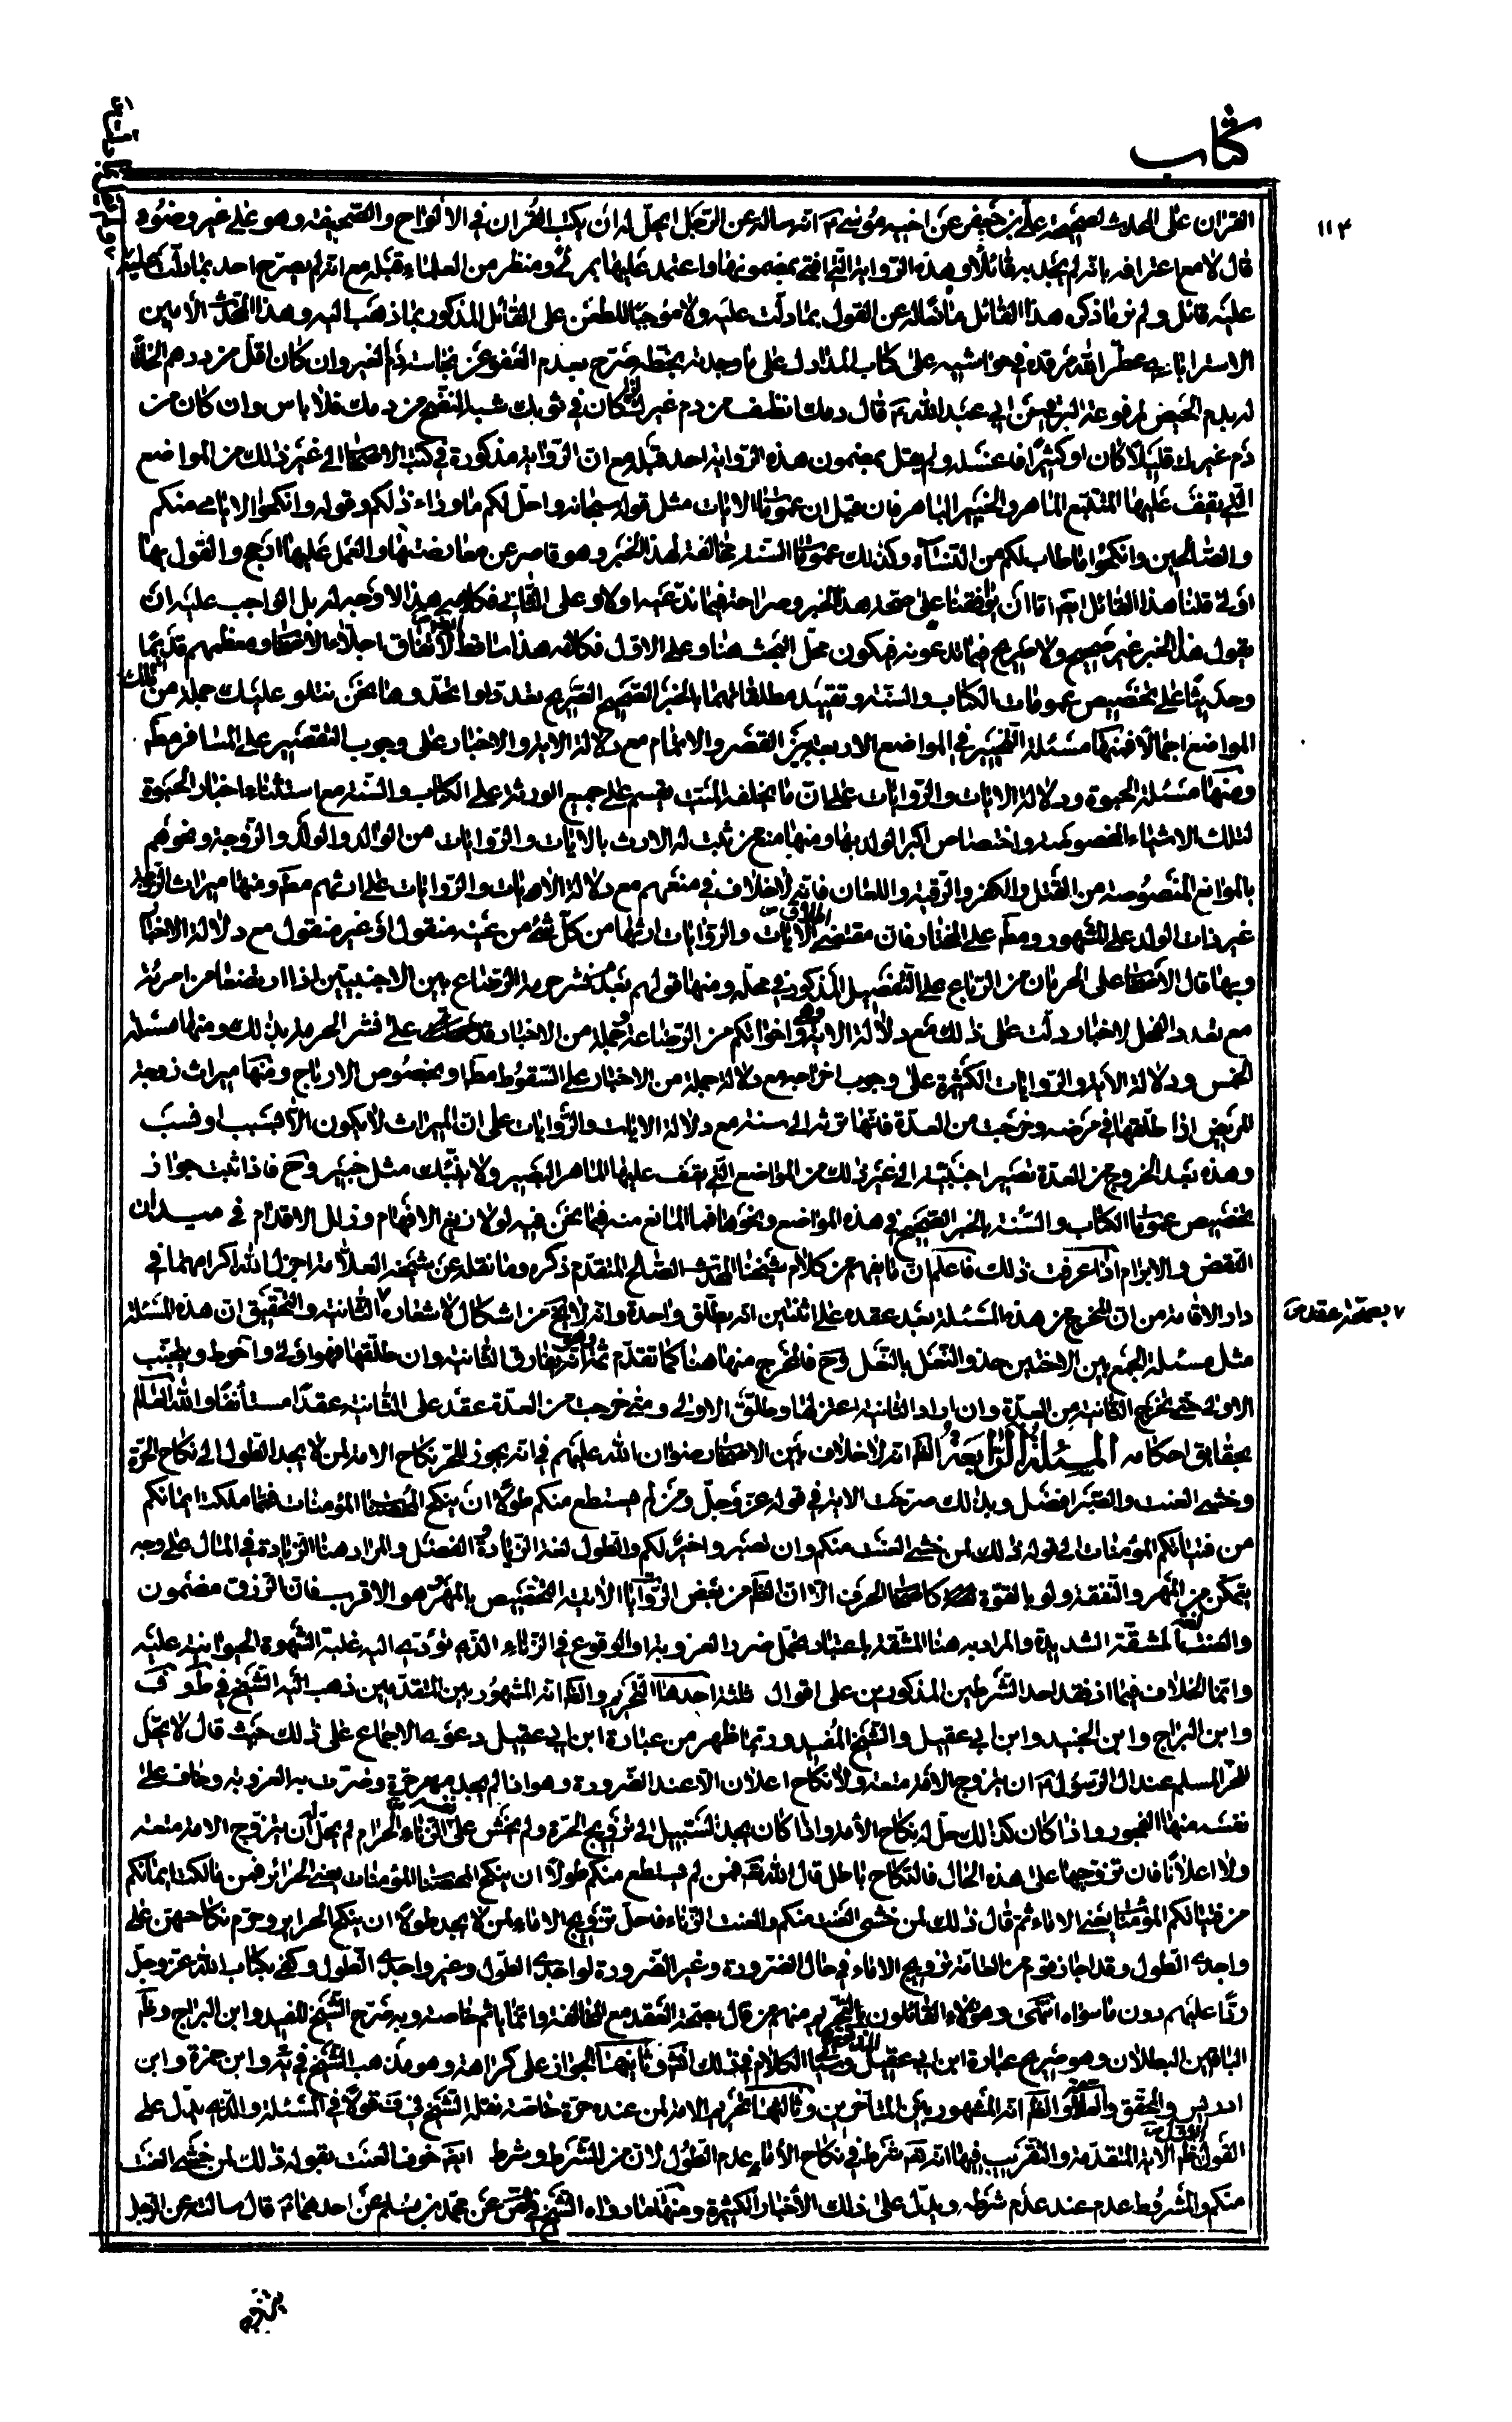 كتاب
١١٤
القران على المحدث لصحيحة علي بن جعفر عن اخيه موسى ع انه ساله عن الرجل ايحل له ان يكتب القران في الالواح والصحيفة وهو على غير وضوء
قال لا مع اعترافه بانه لم يجد به قائلا وهذه الرواية التي افتى بمضمونها واعتمد عليها بمرئى ومنظر من العلماء قبله مع انه لم يصرح احد بما دلت عليه
عليه قائل ولم نر ما ذكره هذا القائل مانعا له عن القول بما دلت عليه ولا موجبا للطعن على القائل المذكور بما ذهب اليه وهذا المحدث الامين
الاسترابادي عطر الله مرقده في حواشيه على كتاب المدارك على ما وجدته بخطه صرح بعدم العفو عن نجاسة دم الغير وان كان اقل من درهم الحاقا
له بدم الحيض لمرفوعة البرقي عن ابي عبد الله ع قال دمك انظف من دم غيرك اذا كان في ثوبك شبه النضح من دمك فلا باس وان كان من
دم غيرك قليلا كان او كثيرا فاغسله ولم يقل بمضمون هذه الرواية احد قبله مع ان الرواية مذكورة في كتب الاصحاب الى غير ذلك من المواضع
التي يقف عليها المتتبع الماهر والخبير الباهر فان قيل ان عمومات الايات مثل قوله سبحانه واحل لكم ما وراء ذلكم وقوله وانكحوا الايامى منكم
والصالحين وانكحوا ما طاب لكم من النساء وكذلك عمومات السنة مخالفة لهذا الخبر وهو قاصر عن معارضتها والعمل عليها ارجح والقول بها
اولى قلنا هذا القائل ايضا اما ان يوافقنا على صحة هذا الخبر وصراحته فيما ندعيه اولا وعلى الثاني فكلامه هذا لا وجه له بل الواجب عليه ان
يقول هذا الخبر غير صحيح ولا صريح فيما تدعونه فيكون محل البحث هنا وعلى الاول فكلامه هذا ساقط لاتفاق اجلاء الاصحاب ومعظمهم قديما
وحديثا على تخصيص عمومات الكتاب والسنة وتقييد مطلقاتهما بالخبر الصحيح الصريح تعدد او اتحد وها نحن نتلو عليك جملة من تلك
المواضع اجمالا فمنها مسئلة التخيير في المواضع الاربعة بين القصر والاتمام مع دلالة الاية والاخبار على وجوب التقصير على المسافر مطلقا
ومنها مسئلة الحبوة ودلالة الايات والروايات على ان ما يخلفه الميت يقسم على جميع الورثة على الكتاب والسنة مع استثناء اخبار الحبوة
لتلك الاشياء المخصوصة واختصاص اكبر الولد بها ومنها منع من ثبت له الارث بالايات والروايات من الوالد والولد والزوجة ونحوهم
بالموانع المنصوصة من القتل والكفر والرقية واللعان فانه لا خلاف في منعهم مع دلالة الايات والروايات على ارثهم مطلقا ومنها ميراث الزوجة
غير ذات الولد على المشهور ومطلقا على المختار فان مقتضى اطلاق الايات والروايات ارثها من كل شئ من عينه منقول او غير منقول مع دلالة الاخبار
وبها قال الاصحاب على الحرمان من الرباع على التفصيل المذكور في محله ومنها قولهم بعدم نشر حرمة الرضاع بين الاجنبيين اذا ارتضعا من امراة
مع تعدد الفحل لاخبار دلت على ذلك مع دلالة الاية وهي واخواتكم من الرضاعة وجملة من الاخبار على نشر الحرمة بذلك ومنها مسئلة
الخمس ودلالة الاية والروايات الكثيرة على وجوب اخراجه مع دلالة جملة من الاخبار على السقوط مطلقا او بخصوص الارباح ومنها ميراث زوجة
المريض اذا طلقها في مرضه وخرجت من العدة فانها ترثه الى سنة مع دلالة الايات والروايات على ان الميراث لا يكون الا بسبب او نسب
وهذه بعد الخروج من العدة تصير اجنبية الى غير ذلك من المواضع التي يقف عليها الماهر البصير ولا ينبئك مثل خبير وح فاذا ثبت جواز
تخصيص عمومات الكتاب والسنة بالخبر الصحيح في هذه المواضع ونحوها فما المانع منه فيما نحن فيه لولا زيغ الافهام وزلل الاقدام في ميدان
النقض والابرام اذا عرفت ذلك فاعلم ان ما يفهم من كلام شيخنا المحدث الصالح المتقدم ذكره وما نقله عن شيخه العلامة اجزل الله اكرامهما في
دار الاقامة من ان المخرج من هذه المسئلة بعد عقده على اثنتين انه يطلق واحدة وانه لا يخ من اشكال لاشعاره ٧ الثانية والتحقيق ان هذه المسئلة
٧ بصحة عقد
مثل مسئلة الجمع بين الاختين حذو النعل بالنعل وح فالمخرج منها هنا كما تقدم ثمة وهو انه يفارق الثانية وان طلقها فهو اولى واحوط ويجتنب
الاولى حتى تخرج الثانية من العدة وان اراد الثانية اعتزلها وطلق الاولى ومتى خرجت من العدة عقد على الثانية عقدا مستأنفا والله العالم
بحقايق احكامه المسئلة الرابعة الظ انه لا خلاف بين الاصحاب رضوان الله عليهم في انه يجوز للحر نكاح الامة لمن لا يجد الطول الى نكاح الحرة
وخشي العنت والصبر افضل وبذلك صرحت الاية في قوله عز وجل ومن لم يستطع منكم طولا ان ينكح المحصنات المؤمنات فمما ملكت ايمانكم
من فتياتكم المؤمنات الى قوله ذلك لمن خشي العنت منكم وان تصبروا خير لكم والطول لغة الزيادة والفضل والمراد هنا الزيادة في المال على وجه
يتمكن من المهر والنفقة ولو بالقوة كاصحاب الحرف الا ان الظ من بعض الروايات الاتية التخصيص بالمهر وهو الاقرب فان الرزق مضمون
والعنت لغة المشقة الشديدة والمراد به هنا المشقة باعتبار تحمل ضرر العزوبة او الوقوع في الزناء الذي تؤديه اليه غلبة الشهوة الحيوانية عليه
وانما الخلاف فيما اذ فقد احد الشرطين المذكورين على اقوال ثلثة احدها التحريم والظ انه المشهور بين المتقدمين ذهب اليه الشيخ في ط و ف
وابن البراج وابن الجنيد وابن ابي عقيل والشيخ المفيد وربما ظهر من عبارة ابن ابي عقيل دعوى الاجماع على ذلك حيث قال لا يحل
للحر المسلم عند ال الرسول ع ان يتزوج الامة متعة ولا نكاح اعلان الا عند الضرورة وهو اذا لم يجد مهر حرة وضرت به العزوبة وخاف على
نفسه منها الفجور واذا كان كذلك حل له نكاح الامة واذا كان يجد السبيل الى تزويج الحرة ولم يخش على نفسه الزناء الحرام لم يحل له ان يتزوج الامة متعة
ولا اعلانا فان تزوجها على هذه الحال فالنكاح باطل قال الله تعه فمن لم يستطع منكم طولا ان ينكح المحصنات المؤمنات يعني الحرائر فمن ما ملكت ايمانكم
من فتياتكم المؤمنات يعني الاماء ثم قال ذلك لمن خشي العنت منكم والعنت الزناء فاحل تزويج الاماء لمن لا يجد طولا ان ينكح الحراير وحرم نكاحهن على
واجدي الطول وقد اجاز قوم من العامة تزويج الاماء في حال الضرورة وغير الضرورة لواجدي الطول وغير واجدي الطول وكفى بكتاب الله عز وجل
ردا عليهم دون ما سواه انتهى وهؤلاء القائلون بالتحريم منهم من قال بصحة العقد مع المخالفة وانما ياثم خاصة وبه صرح الشيخ المفيد وابن البراج وظ
الباقين البطلان وهو صريح عبارة ابن ابي عقيل المذكورة وسياتي الكلام في ذلك انش وثانيها الجواز على كراهة وهو مذهب الشيخ في ية وابن حمزة وابن
ادريس والمحقق والعلامة والظ انه المشهور بين المتاخرين وثالثها تحريم الامة لمن عنده حرة خاصة نقله الشيخ في ف قولا في المسئلة والذي يدل على
القول الاول ظ الاية المتقدمة والتقريب فيها انه تعه شرط في نكاح الاماء عدم الطول لان من للشرط وشرط ايضا خوف العنت بقوله ذلك لمن خشي العنت
منكم والمشروط عدم عند عدم شرطه ويدل على ذلك الاخبار الكثيرة ومنها ما رواه الشيخ في الصحيح عن محمد بن مسلم عن احدهما ع قال سالته عن الرجل
يتزوج